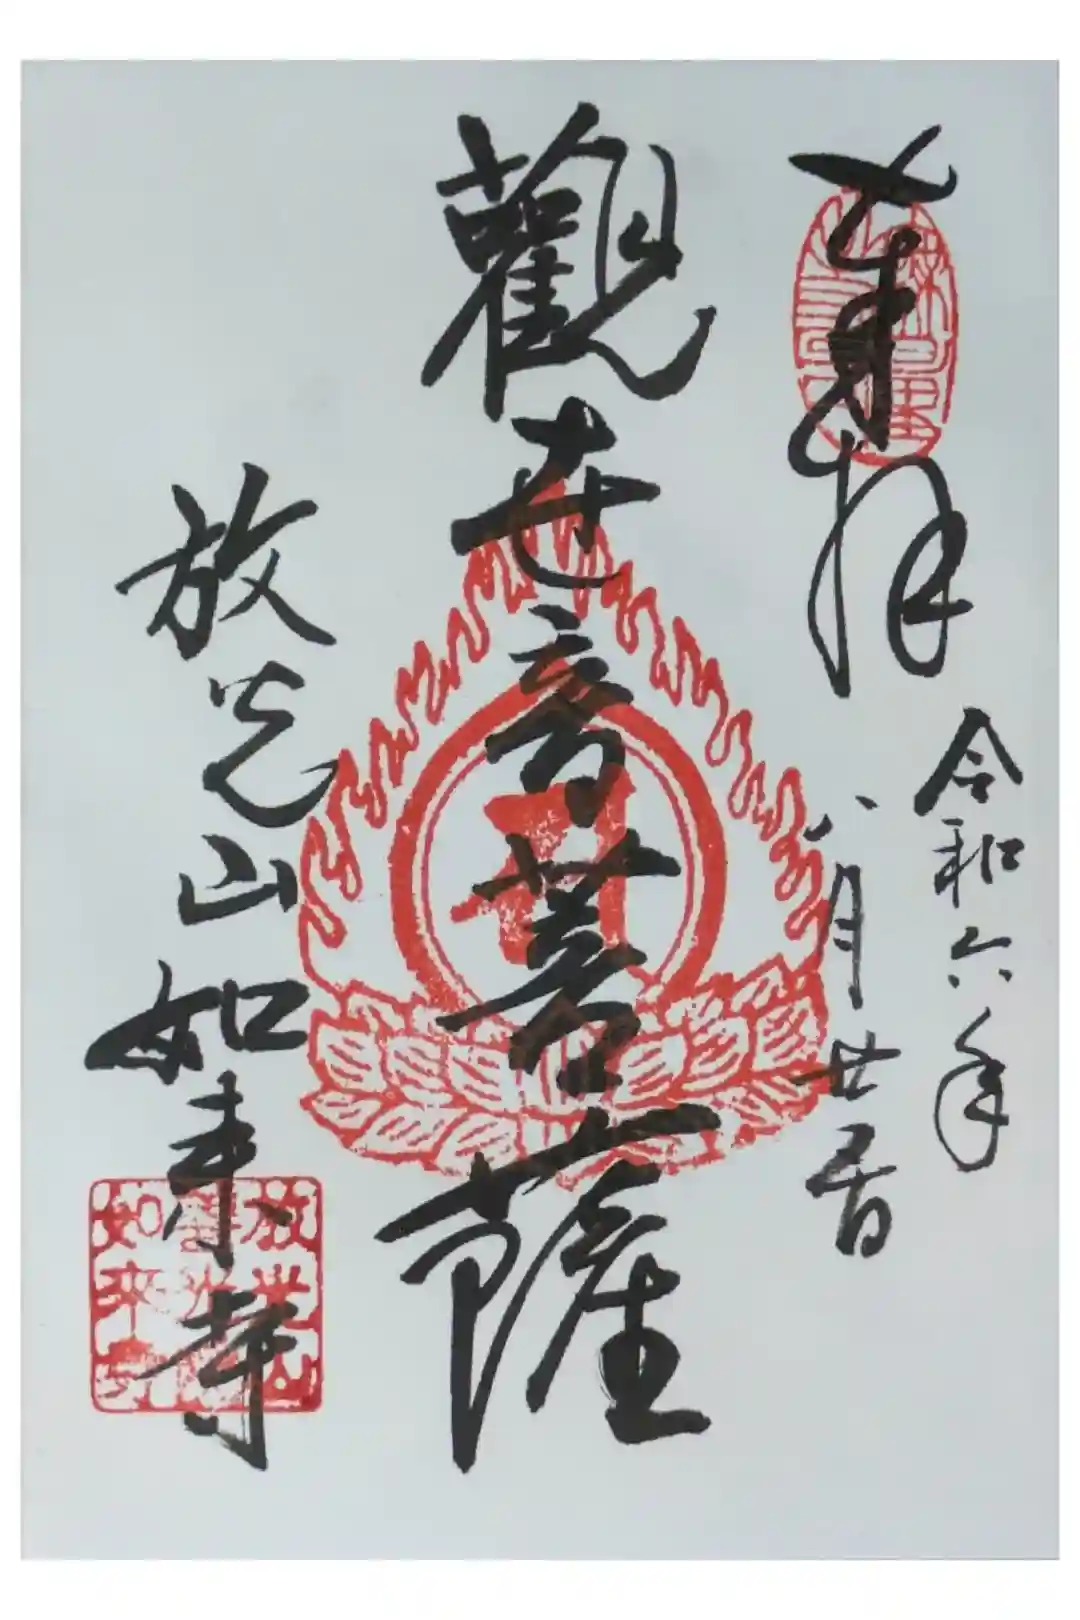 奉拝
令和六年
八月廿五日
觀世音菩薩
放光山如来寺
放光山
如來寺